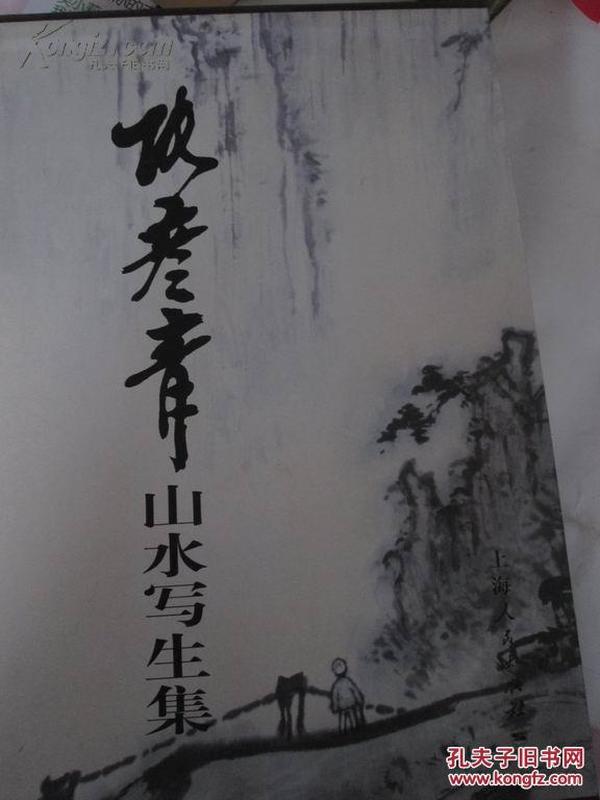 Kongfz.com
孔夫子旧书网
张彦青
山水写生集
上海人民
孔夫子旧书网
www.kongfz.com